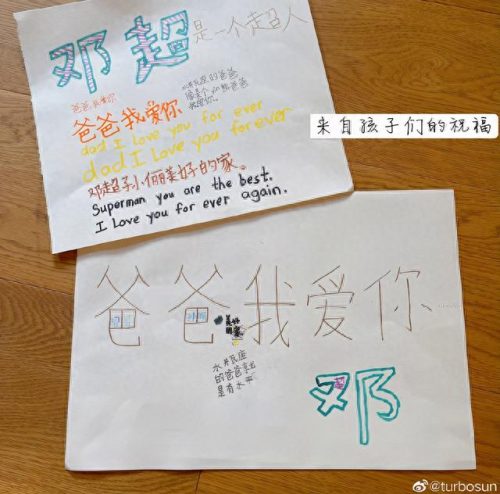 邓超是一个超人
爸爸我爱你
水井瓦座的爸爸
我爱你。
爸爸我爱你
dad I love you for ever
dad I love you forever
邓超子小俪美好的家。
Superman you are the best.
I love you for ever again.
来自孩子们的祝福
爸爸我爱你
水井瓦座
的爸爸
是有水平
邓
@turbosun